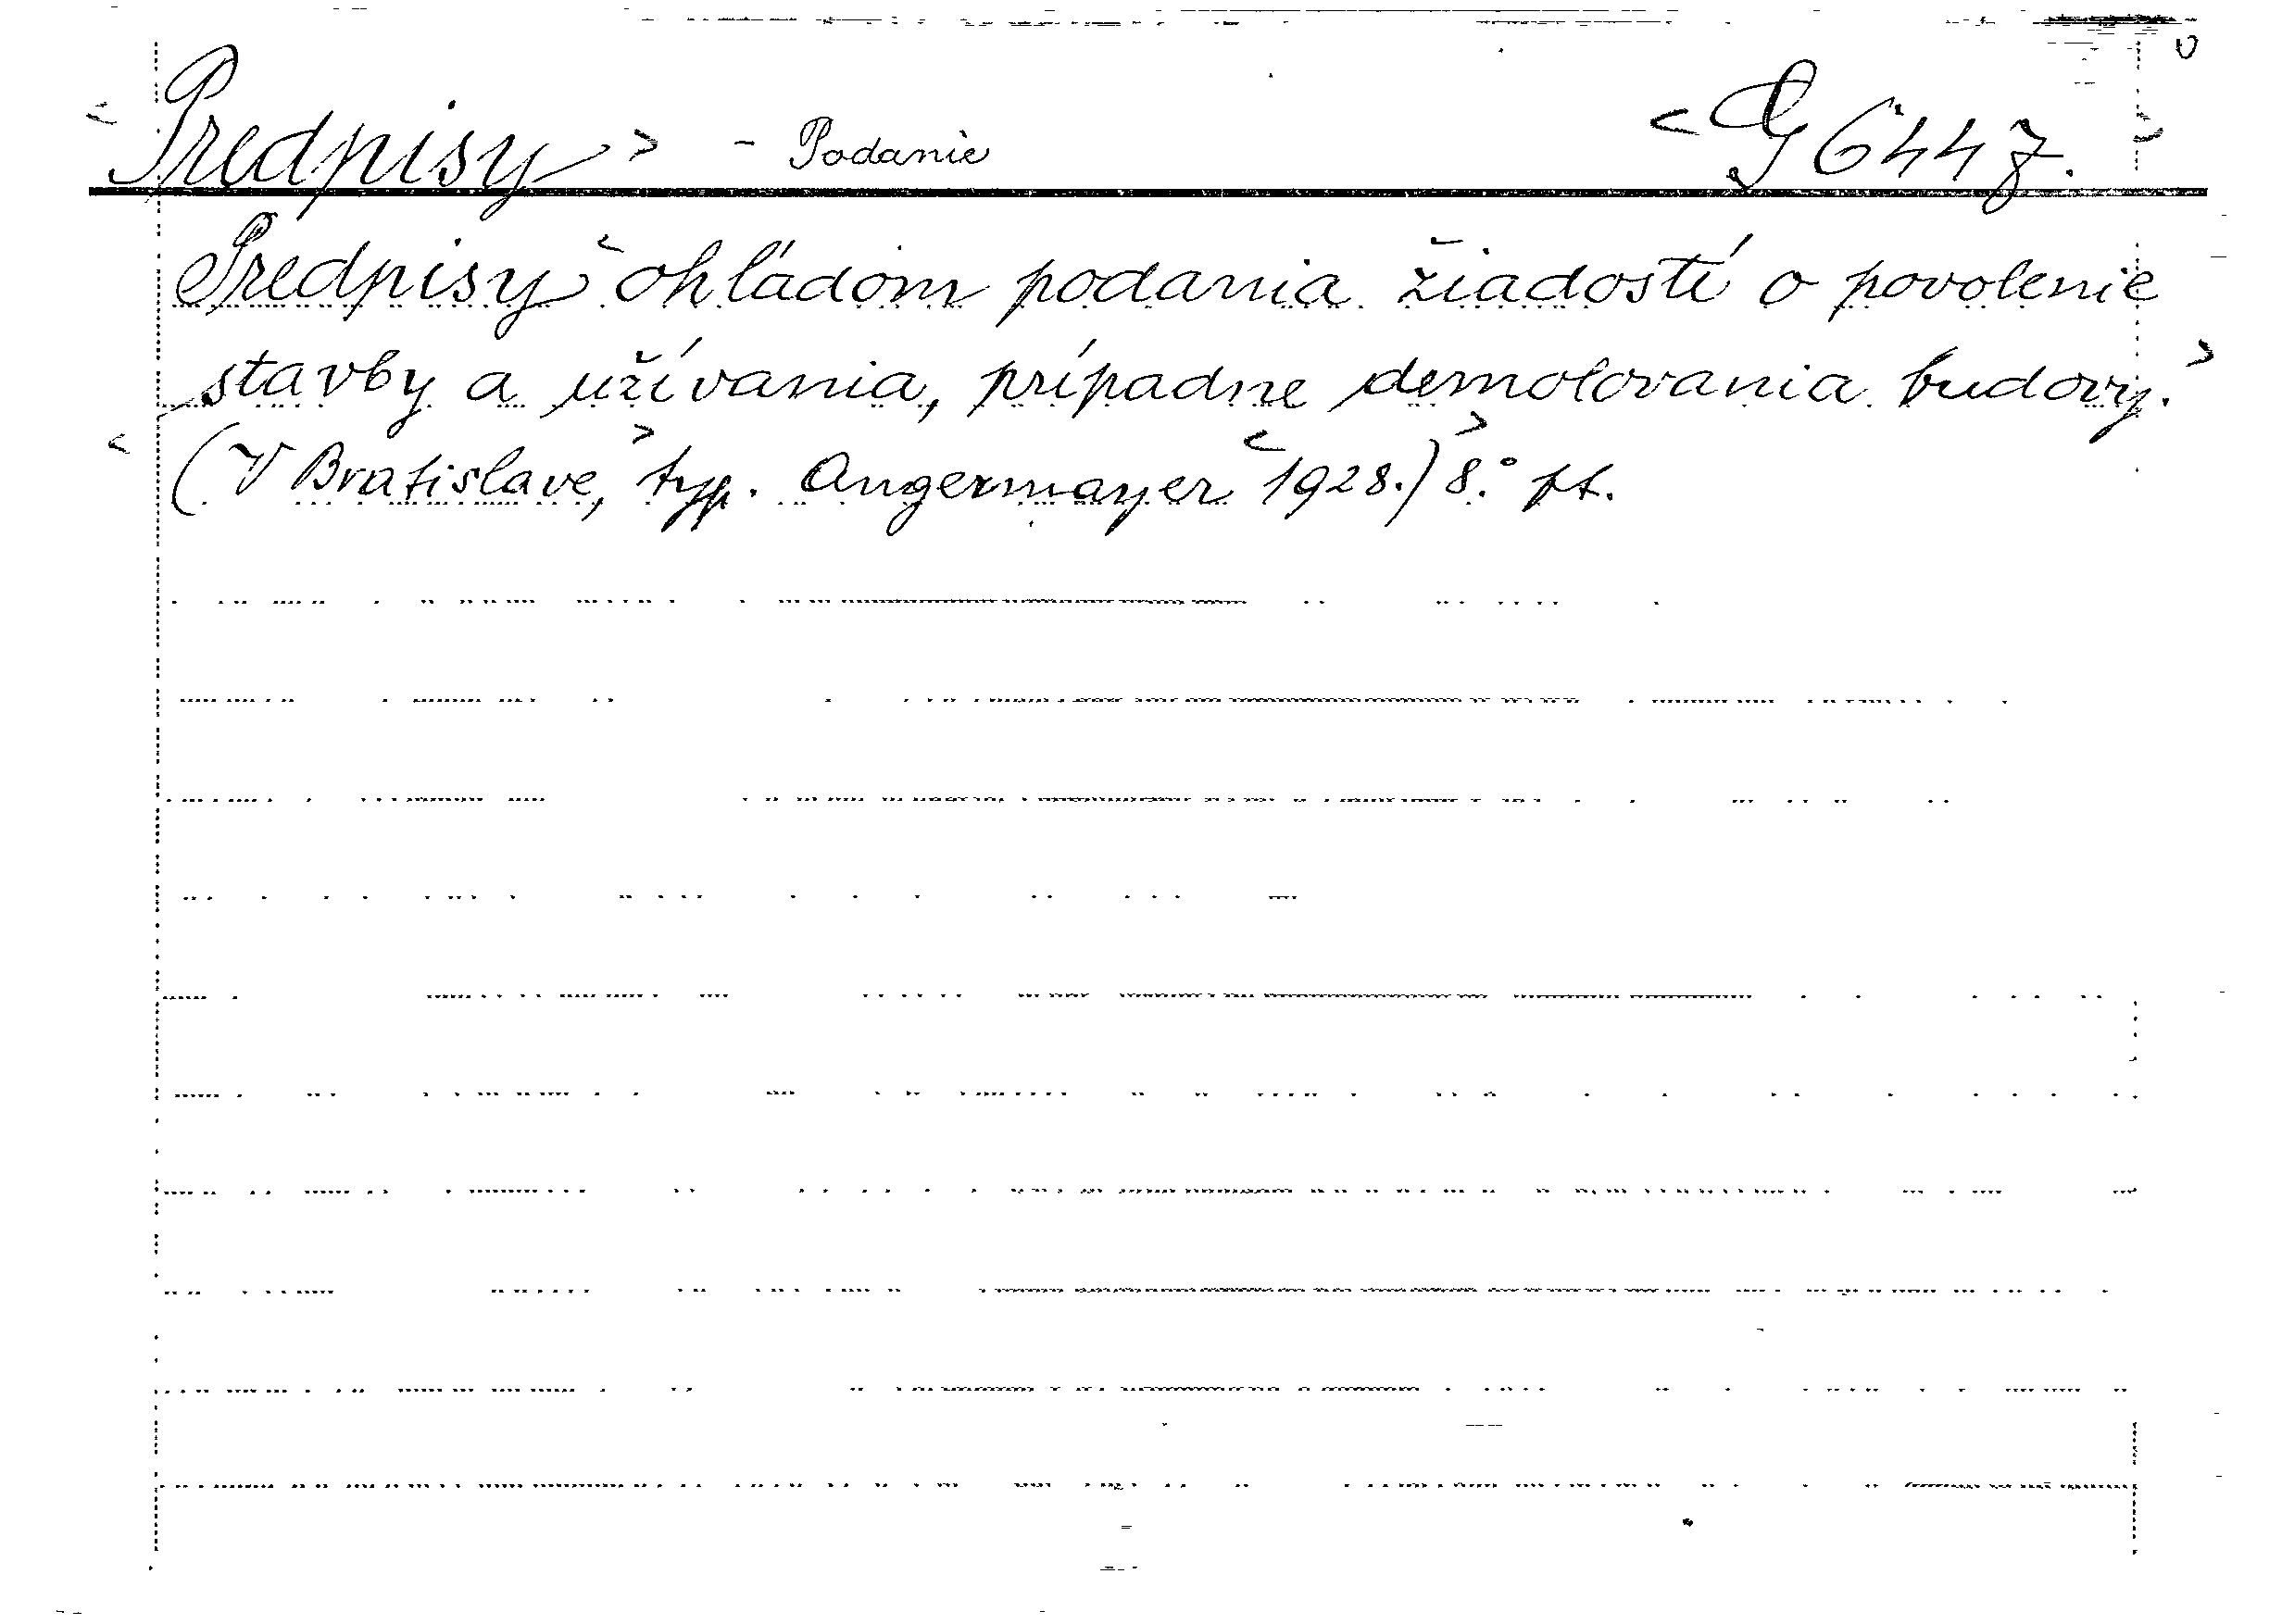 <Predpisy> - Podanie <G 6447.>
<Predpisy ohľadom podania žiadostí o povolenie
stavby a užívania, prípadne demolovania budovy.>
<(V Bratislave,> typ. Angermayer <1928.)> 8.° pt.